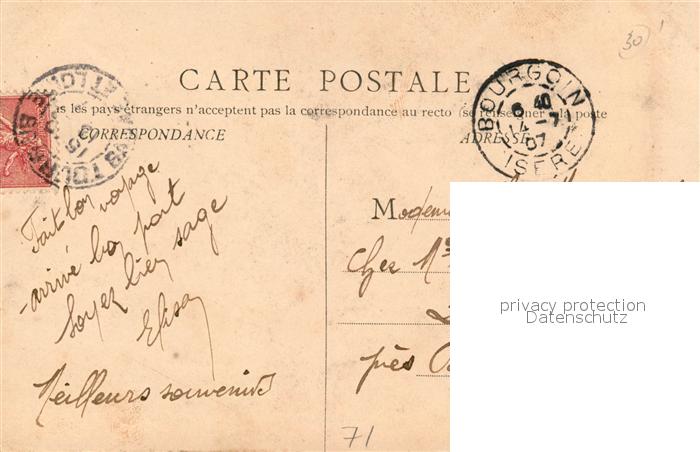 30
CARTE POSTALE
les pays étrangers n'acceptent pas la correspondance au recto (se renseigner à la poste
CORRESPONDANCE
ADRESSE
BOURGOIN
6 40
14 -7
07
ISÈRE
Fait bon voyage
arrivé bon port
Soyez bien sage
Elisa
Meilleurs souvenirs
Chez M
près
privacy protection
Datenschutz
71